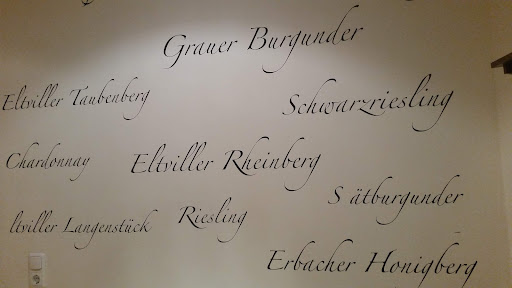 Grauer Burgunder
Eltviller Taubenberg
Schwarzriesling
Chardonnay
Eltviller Rheinberg
S ätburgunder
ltviller Langenstück
Riesling
Erbacher Honigberg